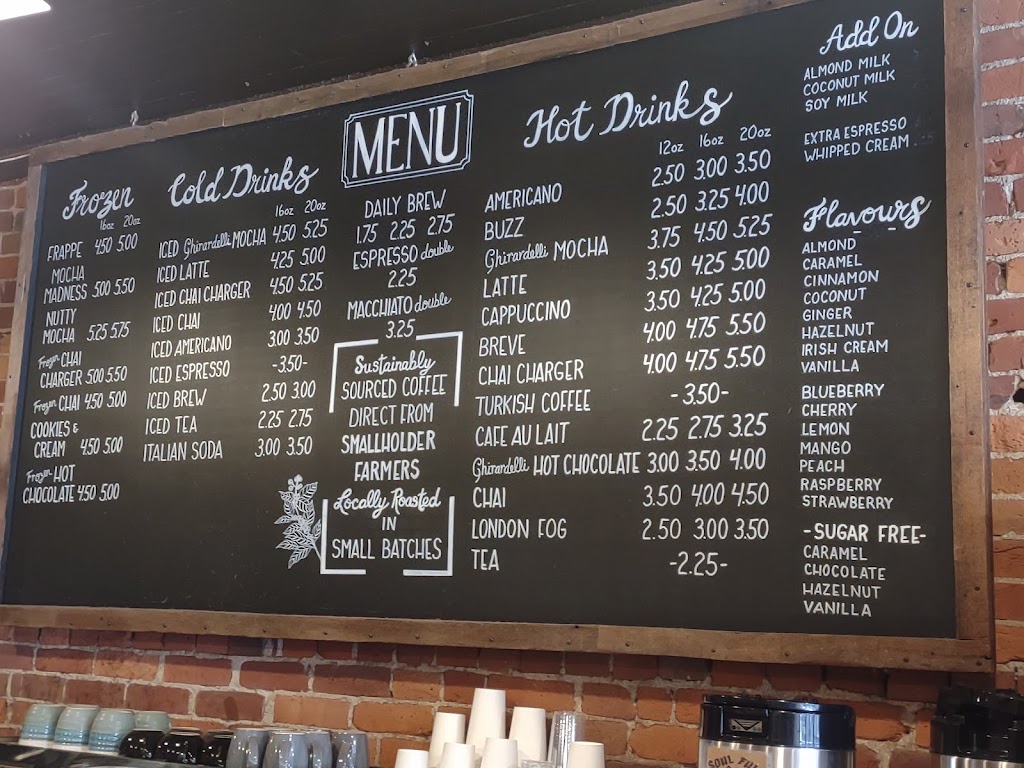 MENU
Frozen
16oz 20oz
FRAPPE 4.50 5.00
MOCHA
MADNESS 5.00 5.50
NUTTY
MOCHA 5.25 5.75
Frozen CHAI
CHARGER 5.00 5.50
Frozen CHAI 4.50 5.00
COOKIES &
CREAM 4.50 5.00
Frozen HOT
CHOCOLATE 4.50 5.00
Cold Drinks
16oz 20oz
ICED Ghirardelli MOCHA 4.50 5.25
ICED LATTE 4.25 5.00
ICED CHAI CHARGER 4.50 5.25
ICED CHAI 4.00 4.50
ICED AMERICANO 3.00 3.50
ICED ESPRESSO -3.50-
ICED BREW 2.50 3.00
ICED TEA 2.25 2.75
ITALIAN SODA 3.00 3.50
DAILY BREW
1.75 2.25 2.75
ESPRESSO double
2.25
MACCHIATO double
3.25
Sustainably
SOURCED COFFEE
DIRECT FROM
SMALLHOLDER
FARMERS
Locally Roasted
IN
SMALL BATCHES
Hot Drinks
12oz 16oz 20oz
AMERICANO 2.50 3.00 3.50
BUZZ 2.50 3.25 4.00
Ghirardelli MOCHA 3.75 4.50 5.25
LATTE 3.50 4.25 5.00
CAPPUCCINO 3.50 4.25 5.00
BREVE 4.00 4.75 5.50
CHAI CHARGER 4.00 4.75 5.50
TURKISH COFFEE -3.50-
CAFE AU LAIT 2.25 2.75 3.25
Ghirardelli HOT CHOCOLATE 3.00 3.50 4.00
CHAI 3.50 4.00 4.50
LONDON FOG 2.50 3.00 3.50
TEA -2.25-
Add On
ALMOND MILK
COCONUT MILK
SOY MILK
EXTRA ESPRESSO
WHIPPED CREAM
Flavours
ALMOND
CARAMEL
CINNAMON
COCONUT
GINGER
HAZELNUT
IRISH CREAM
VANILLA
BLUEBERRY
CHERRY
LEMON
MANGO
PEACH
RASPBERRY
STRAWBERRY
-SUGAR FREE-
CARAMEL
CHOCOLATE
HAZELNUT
VANILLA
SOUL